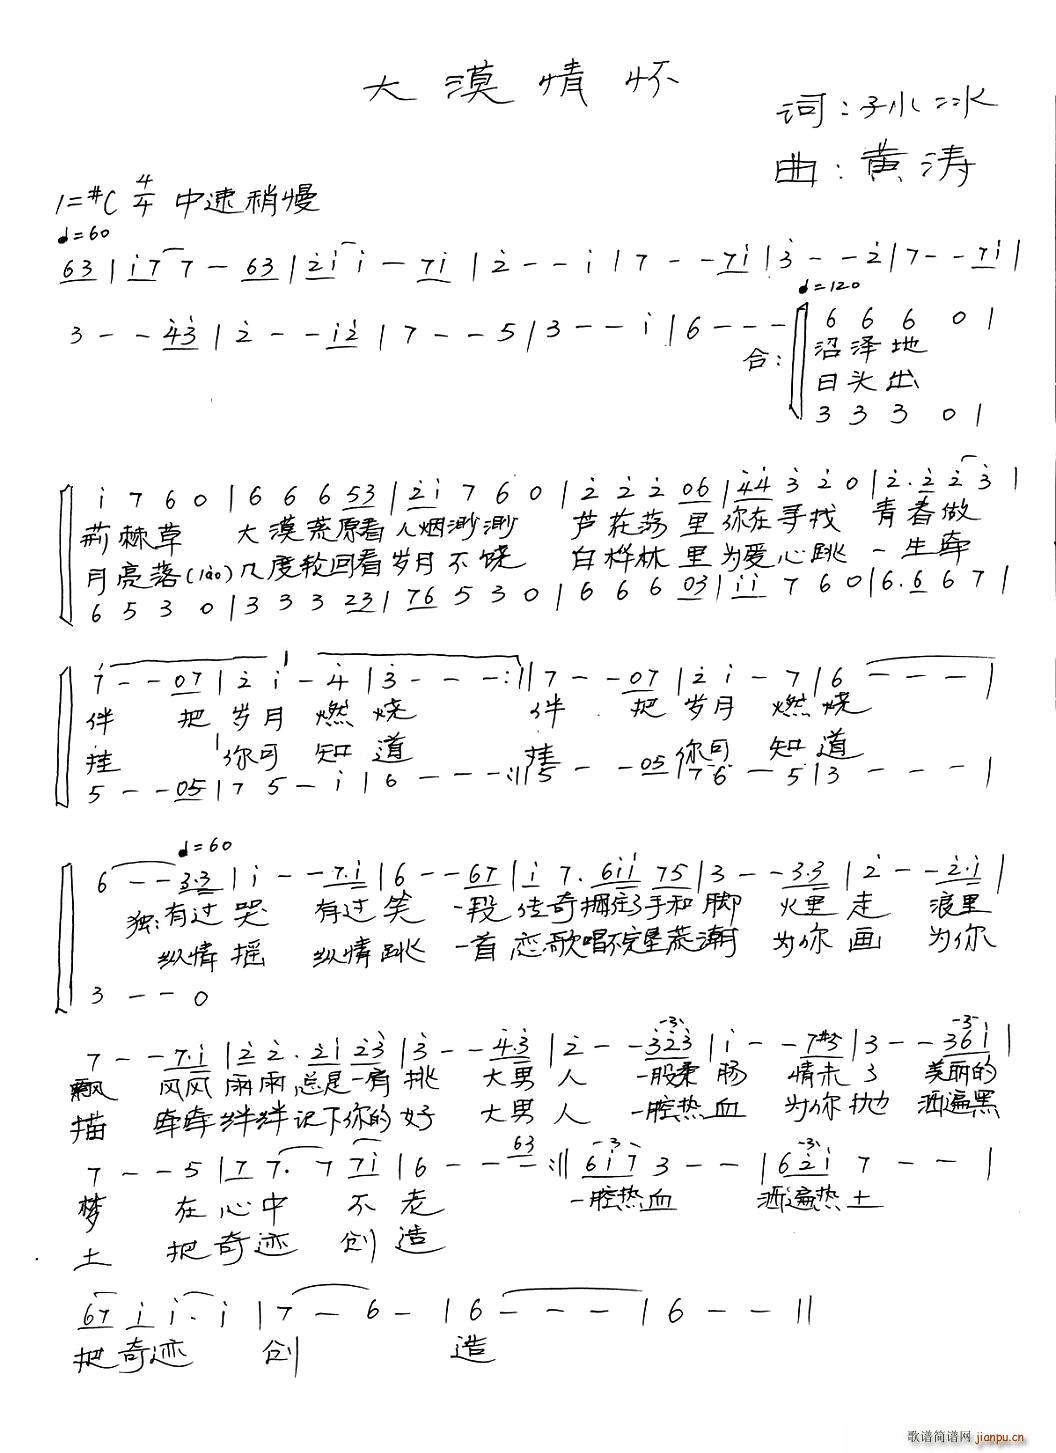 大漠情怀
词：孙冰冰
曲：黄涛
1=#C 4/4 中速稍慢
♩=60
63 | i7 7 - 63 | 2i i i - 7i | 2 - - i | 7 - - 7i | 3 - - 2 | 7 - - 7i |
♩=120
3 - - 43 | 2 - - i2 | 7 - - 5 | 3 - - i | 6 - - - 合: 6 6 6 0 |
沼泽地
日头出
3 3 3 0 |
i 7 6 0 | 6 6 6 53 | 2i 7 6 0 | 2 2 2 06 | 44 3 2 0 | 2. 2 2 3 |
荊棘草 大漠荒原着人烟渺渺 芦花荡里你在寻找 青春做
月亮落 几度轮回看岁月不饶 白桦林里为爱心跳 一生牵
6 5 3 0 | 3 3 3 23 | 76 5 3 0 | 6 6 6 03 | ii 7 6 0 | 6. 6 6 7 |
7 - - 07 | 2 i - 4 | 3 - - - :|| 7 - - 07 | 2 i - 7 | 6 - - - |
伴 把岁月燃烧 伴 把岁月燃烧
挂 你可知道 挂 你可知道
5 - - 05 | 7 5 - i | 6 - - - :|| 5 - - 05 | 7 6 - 5 | 3 - - - |
♩=60
6 - - 3.3 | i - - 7.i | 6 - - 67 | i 7. 6ii 75 | 3 - - 3.3 | 2 - - 2.i |
独:有过哭 有过笑 一段传奇拥住了手和脚 火里走 浪里
纵情摇 纵情跳 一首恋歌唱不完星荒潮 为你画 为你
3 - - 0
7 - - 7.i | 2 2. 2i 23 | 3 - - 4.3 | 2 - - 323 | i - - 7#5 | 3 - - 36i |
飘 风风雨雨总是一肩挑 大男人 一股柔肠 情未了 美丽的
描 牵牵绊绊记下你的好 大男人 一腔热血 为你抛 洒遍黑
7 - - 5 | 7 7. 7 7i | 6 - - - 63 :|| 6i7 3 - - | 62i 7 - - |
梦 在心中 不老 一腔热血 洒遍热土
土 把奇迹 创造
67 i i. i | 7 - 6 - | 6 - - - | 6 - - ||
把奇迹 创 造
歌谱简谱网 jianpu.cn